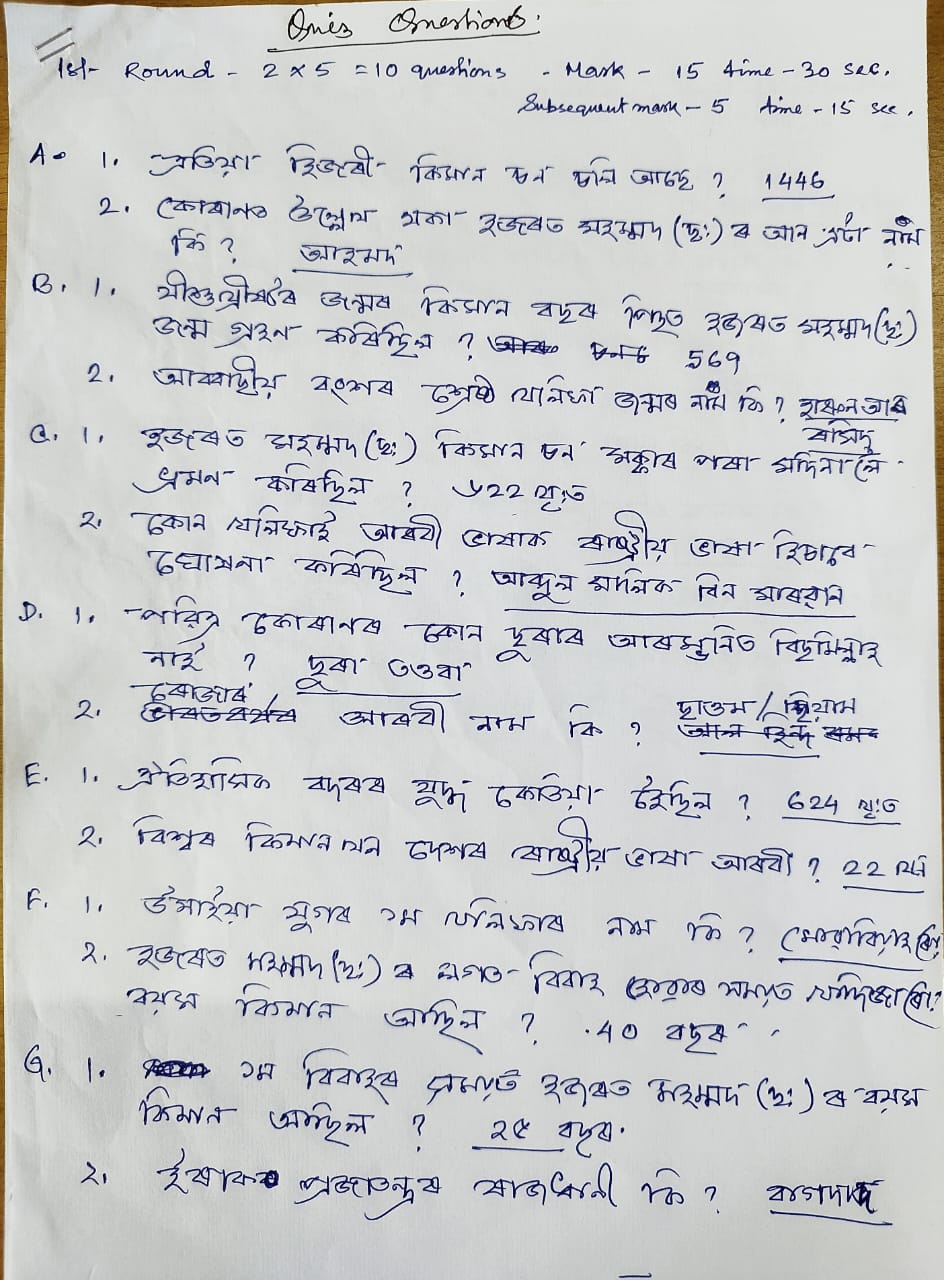 Quiz Questions.
1st- Round - 2 x 5 = 10 questions - Mark - 15 time - 30 sec.
Subsequent mark - 5 time - 15 sec.
A. 1. এতিয়া হিজৰী কিমান চন চলি আছে ? 1446
2. কোৰানত উল্লেখ থকা হজৰত মহম্মদ (ছঃ) ৰ আন এটা নাম
কি ? আহমদ
B. 1. যীশুখ্ৰীষ্টৰ জন্মৰ কিমান বছৰ পিছত হজৰত মহম্মদ (ছঃ)
জন্ম গ্ৰহন কৰিছিল ? 569
2. আব্বাছীয় বংশৰ শ্ৰেষ্ঠ খলিফা জনৰ নাম কি ? হাৰুন আৰ
ৰসিদ
C. 1. হজৰত মহম্মদ (ছঃ) কিমান চন মক্কাৰ পৰা মদিনালৈ
ভ্ৰমন কৰিছিল ? ৬২২ খৃঃত
2. কোন খলিফাই আৰবী ভাষাক ৰাষ্ট্ৰীয় ভাষা হিচাবে
ঘোষনা কৰিছিল ? আব্দুল মালিক বিন মাৰৱান
D. 1. পবিত্ৰ কোৰানৰ কোন ছুৰাৰ আৰম্ভনিত বিছমিল্লাহ
নাই ? ছুৰা তওবা
2. ৰোজাৰ আৰবী নাম কি ? ছাওম / ছিয়াম
E. 1. ঐতিহাসিক বদৰৰ যুদ্ধ কেতিয়া হৈছিল ? 624 খৃঃত
2. বিশ্বৰ কিমান খন দেশৰ ৰাষ্ট্ৰীয় ভাষা আৰবী ? 22 খন
F. 1. উমাইয়া যুগৰ ১ম খলিফাৰ নাম কি ? মোৱাবিয়াহ (ৰাঃ)
2. হজৰত মহম্মদ (ছঃ) ৰ লগত বিবাহ হোৱাৰ সময়ত খাদিজা (ৰাঃ)ৰ
বয়স কিমান আছিল ? 40 বছৰ
G. 1. ১ম বিবাহৰ সময়ত হজৰত মহম্মদ (ছঃ) ৰ বয়স
কিমান আছিল ? ২৫ বছৰ.
2. ইৰাকৰ প্ৰজাতন্ত্ৰৰ ৰাজধানী কি ? বাগদাদ